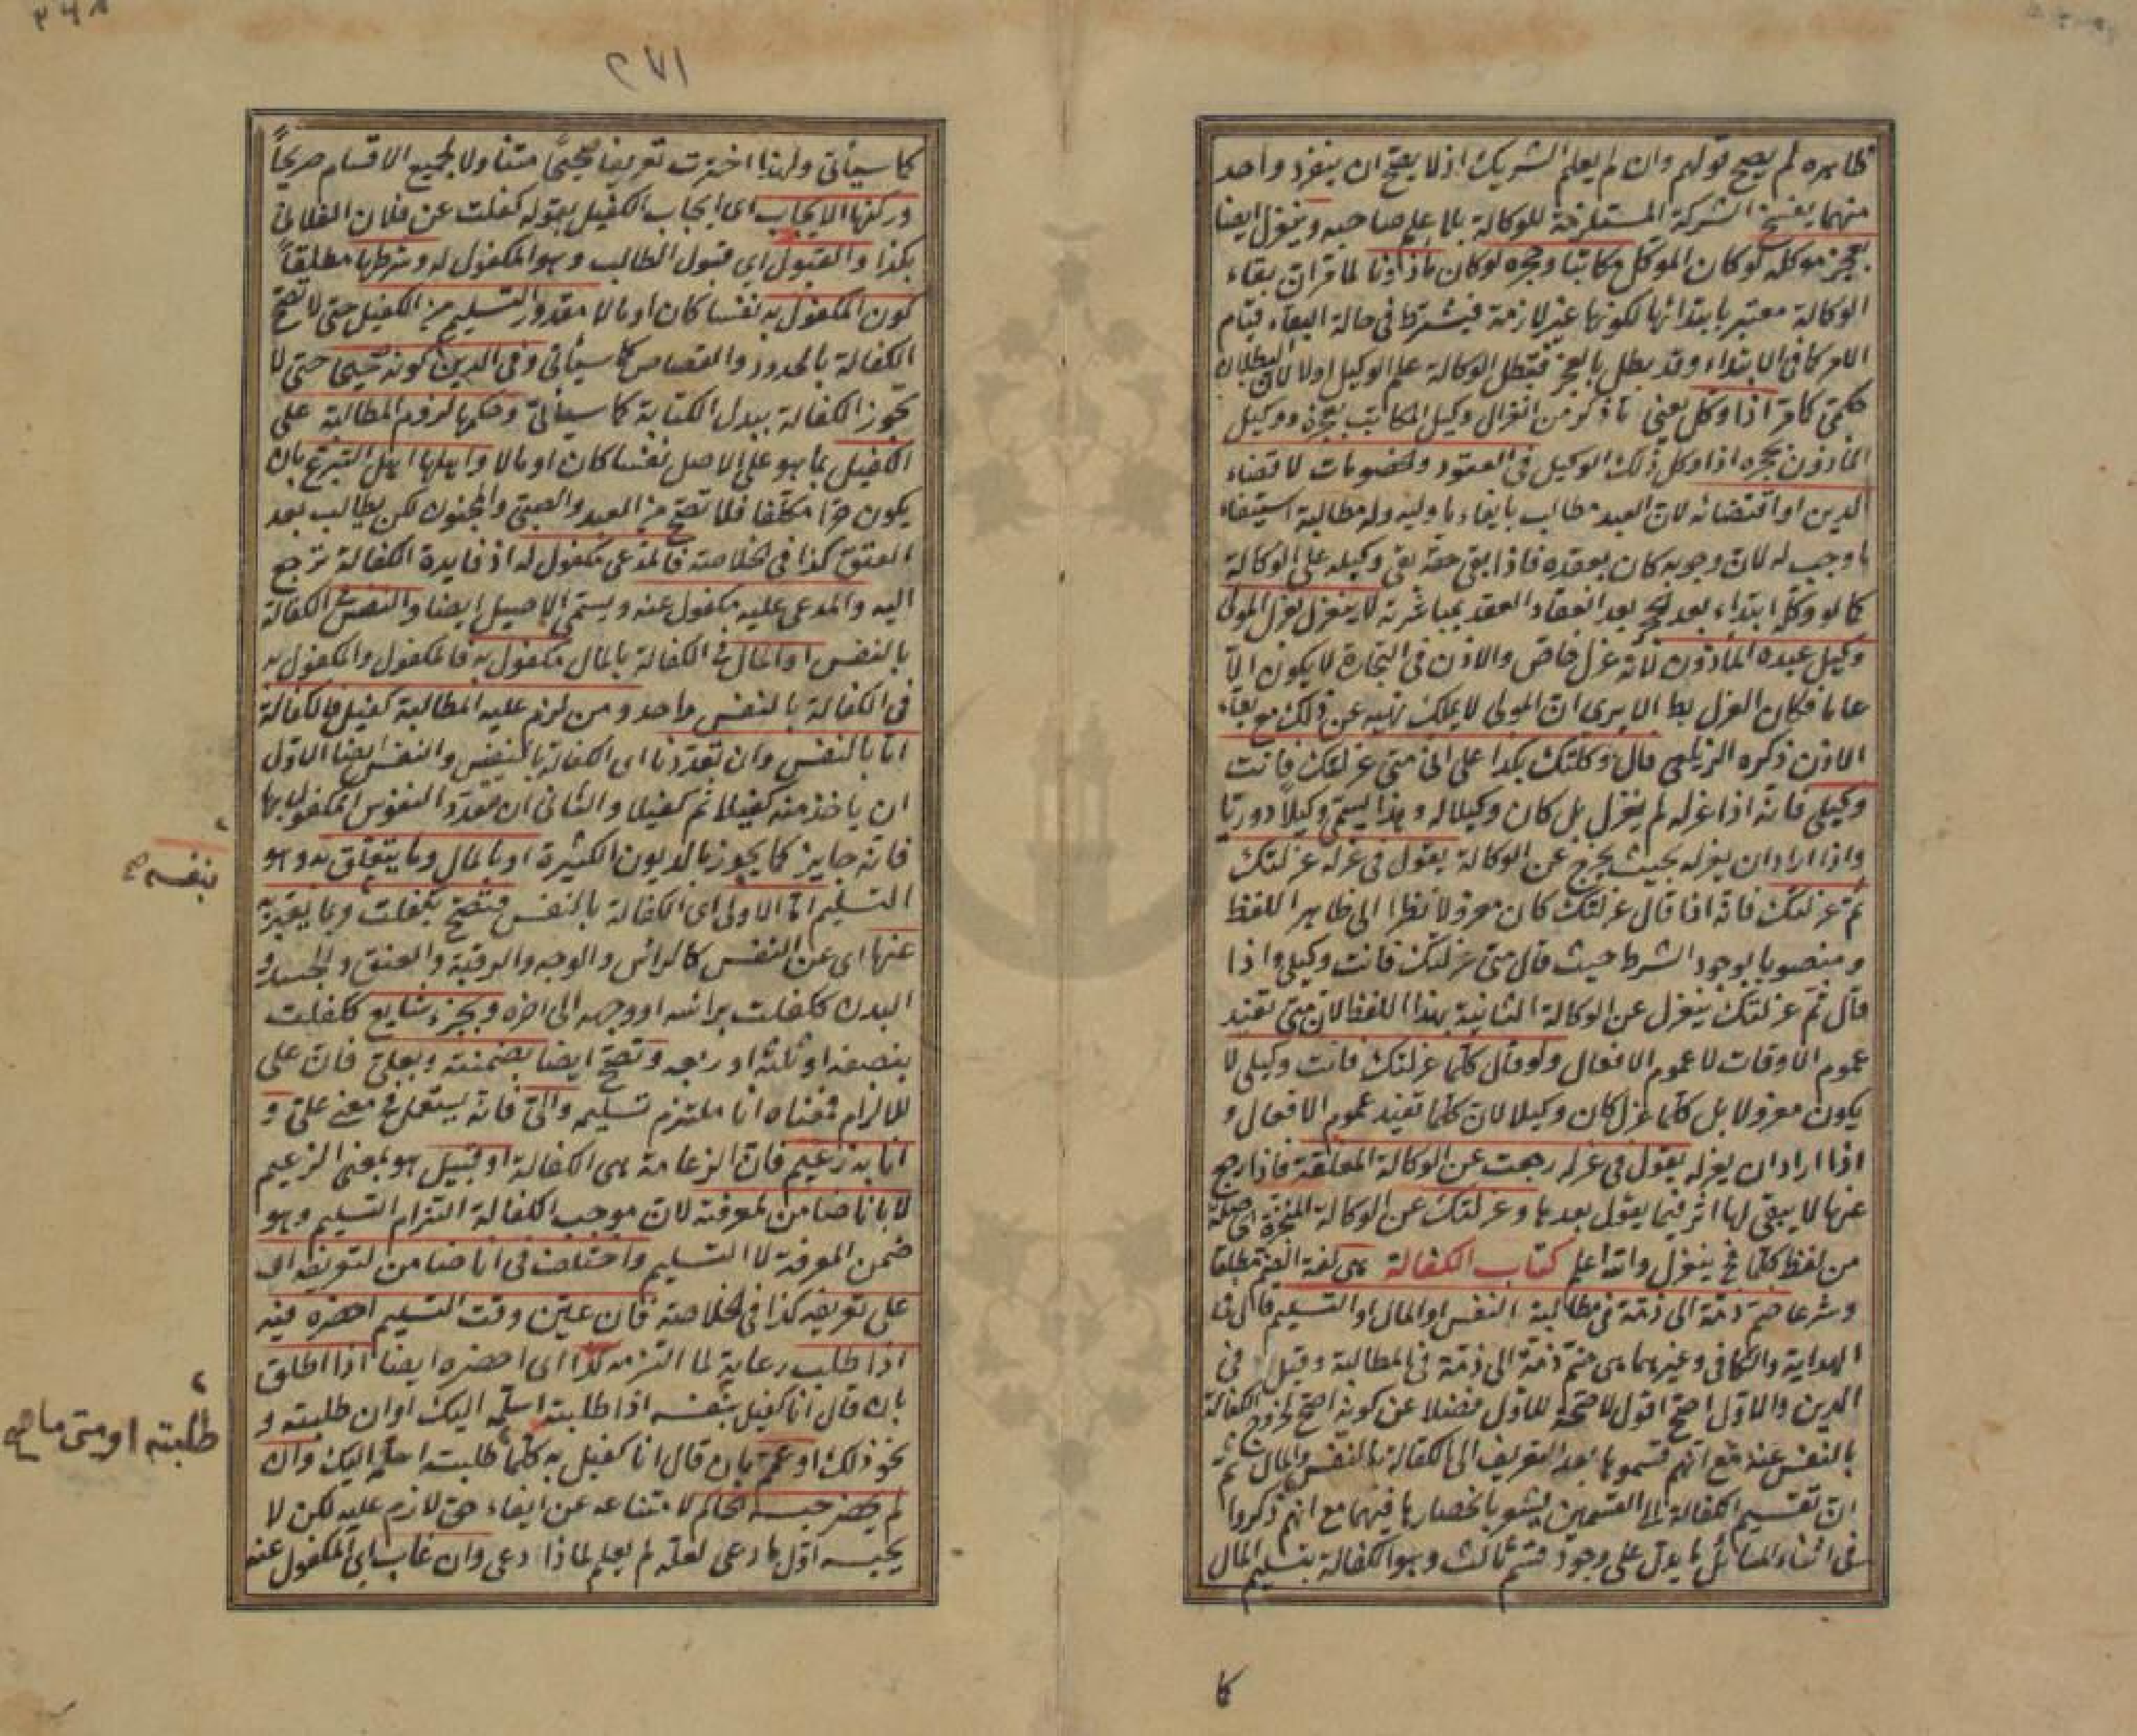 ظاهره لم يصح قولهم وان لم يعلم الشريك اذ لا يصح ان ينفرد واحد
منهما بفسخ الشركة المستلزمة للوكالة بلا علم صاحبه وينعزل ايضا
بعجز موكله لو كان الموكل مكاتبا وحجره لو كان مأذونا لما مر ان بقاء
الوكالة معتبر بابتدائها لكونها غير لازمة فيشترط في حالة البقاء قيام
الامر كما في الابتداء وقد بطل بالعجز فتبطل الوكالة علم الوكيل اولا لان البطلان
حكمي كما مر اذا وكل يعني ما ذكر من انعزال وكيل المكاتب بعجزه ووكيل
المأذون بحجره اذا وكل ذلك الوكيل في العقود والخصومات لا قضاء
الدين او اقتضائه لان العبد مطالب بايفاء ما وليه وله مطالبة استيفاء
ما وجب له لان وجوبه كان بعقده فاذا بقى حقه بقى وكيله على الوكالة
كما لو وكله ابتداء بعد الحجر بعد انعقاد العقد بمباشرته لا ينعزل بعزل المولى
وكيل عبده المأذون لانه عزل خاص والاذن في التجارة لا يكون الا
عاما فكان العزل باطلا الا يرى ان المولى لا يملك نهيه عن ذلك مع بقاء
الاذن ذكره الزيلعي قال وكلتك بكذا على انى متى عزلتك فانت
وكيلى فانه اذا عزله لم ينعزل بل كان وكيلا له وهذا يسمى وكيلا دوريا
واذا اراد ان يعزله بحيث يخرج عن الوكالة يقول في عزله عزلتك
ثم عزلتك فانه اذا قال عزلتك كان معزولا نظرا الى ظاهر اللفظ
ومنصوبا بوجود الشرط حيث قال متى عزلتك فانت وكيلى واذا
قال ثم عزلتك ينعزل عن الوكالة الثانية بهذا اللفظ لان متى تفيد
عموم الاوقات لا عموم الافعال ولو قال كلما عزلتك فانت وكيلى لا
يكون معزولا بل كلما عزل كان وكيلا لان كلما تفيد عموم الافعال و
اذا اراد ان يعزله يقول في عزله رجعت عن الوكالة المعلقة فاذا رجع
عنها لا يبقى لها اثر فيما يقول بعدها وعزلتك عن الوكالة المنجزة اى الحاصلة
من لفظ كلما فح ينعزل والله اعلم كتاب الكفالة هى لغة الضم مطلقا
وشرعا ضم ذمة الى ذمة في مطالبة النفس او المال او التسليم قال في
الهداية والكافى وغيرهما هى ضم ذمة الى ذمة في المطالبة وقيل في
الدين والاول اصح اقول لا صحة للاول فضلا عن كونه اصح لخروج الكفالة
بالنفس عنه مع انهم قسموها بعد التعريف الى الكفالة بالنفس والمال ثم
ان تقسيم الكفالة الى القسمين يشعر بانحصارها فيهما مع انهم ذكروا
في اثناء المسائل ما يدل على وجود قسم ثالث وهو الكفالة بتسليم المال
كما
٢٧١
كما سيأتى ولهذا اخترت تعريفا صحيحا متناولا لجميع الاقسام صريحا
وركنها الايجاب اى ايجاب الكفيل بقوله كفلت عن فلان الفلانى
بكذا والقبول اى قبول الطالب وهو المكفول له وشرطها مطلقا
كون المكفول به نفسا كان او مالا مقدور التسليم من الكفيل حتى لا تصح
الكفالة بالحدود والقصاص كما سيأتى وفى الدين كونه صحيحا حتى لا
تجوز الكفالة ببدل الكتابة كما سيأتى وحكمها لزوم المطالبة على
الكفيل بما هو على الاصل نفسا كان او مالا واهلها اهل التبرع بان
يكون حرا مكلفا فلا تصح من العبد والصبى والمجنون لكن يطالب بعد
العتق كذا فى الخلاصة فالمدعى مكفول له اذ فايدة الكفالة ترجع
اليه والمدعى عليه مكفول عنه ويسمى الاصيل ايضا والنفس فى الكفالة
بالنفس او المال فى الكفالة بالمال مكفول به فالمكفول والمكفول به
فى الكفالة بالنفس واحد ومن لزم عليه المطالبة كفيل فالكفالة
اما بالنفس وان تعددتا اى الكفالة بالنفس والنفس ايضا الاول
ان ياخذ منه كفيلا ثم كفيلا والثانى ان تعدد النفوس المكفول بها
فانه جايز كما يجوز بالديون الكثيرة او بالمال وما يتعلق به وهو
التسليم اما الاولى اى الكفالة بالنفس فتصح بكفلت وبما يعبر به
عنها اى عن النفس كالرأس والوجه والرقبة والعنق والجسد و
البدن ككفلت برأسه او وجهه الى اخره وبجزء شايع ككفلت
بنصفه او ثلثه او ربعه وتصح ايضا بضمنته وبعلى فان على
للالزام فمعناه انا ملتزم تسليمه والى فانه يستعمل فى معنى على و
انا به زعيم فان الزعامة هى الكفالة او قبيل هو بمعنى الزعيم
لا بانا ضامن لمعرفته لان موجب الكفالة التزام التسليم وهو
ضمن المعرفة لا التسليم واختلف فى انا ضامن لتعريفه او
على تعريفه كذا فى الخلاصة فان عين وقت التسليم احضره فيه
اذا طلب رعاية لما التزمه كذا اى احضره ايضا اذا اطلق
بان قال انا كفيل بنفسه اذا طلبته اسلمه اليك او ان طلبته و
نحو ذلك او عمم بان قال انا كفيل به كلما طلبته اسلمه اليك وان
لم يحضر حبسه الحاكم لامتناعه عن ايفاء حق لازم عليه لكن لا
يحبسه اول ما دعى لعله لم يعلم لماذا دعى وان غاب اى المكفول عنه
بنفسه صح
طلبته او متى ما صح